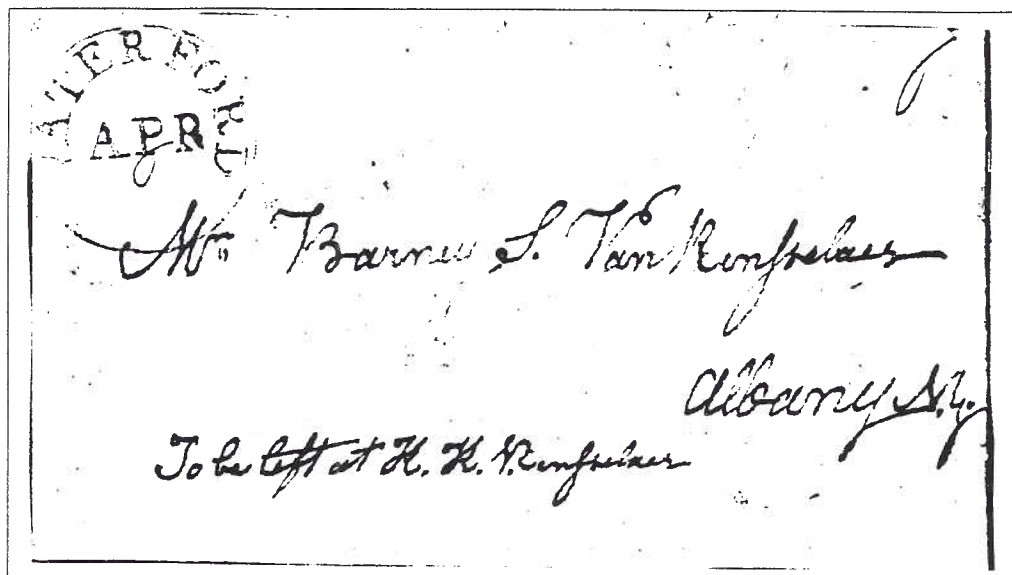 WATERFORD
APR
6
Mr Barney S. Van Rensselaer
Albany N.Y.
To be left at K. K. V. Rensselaer